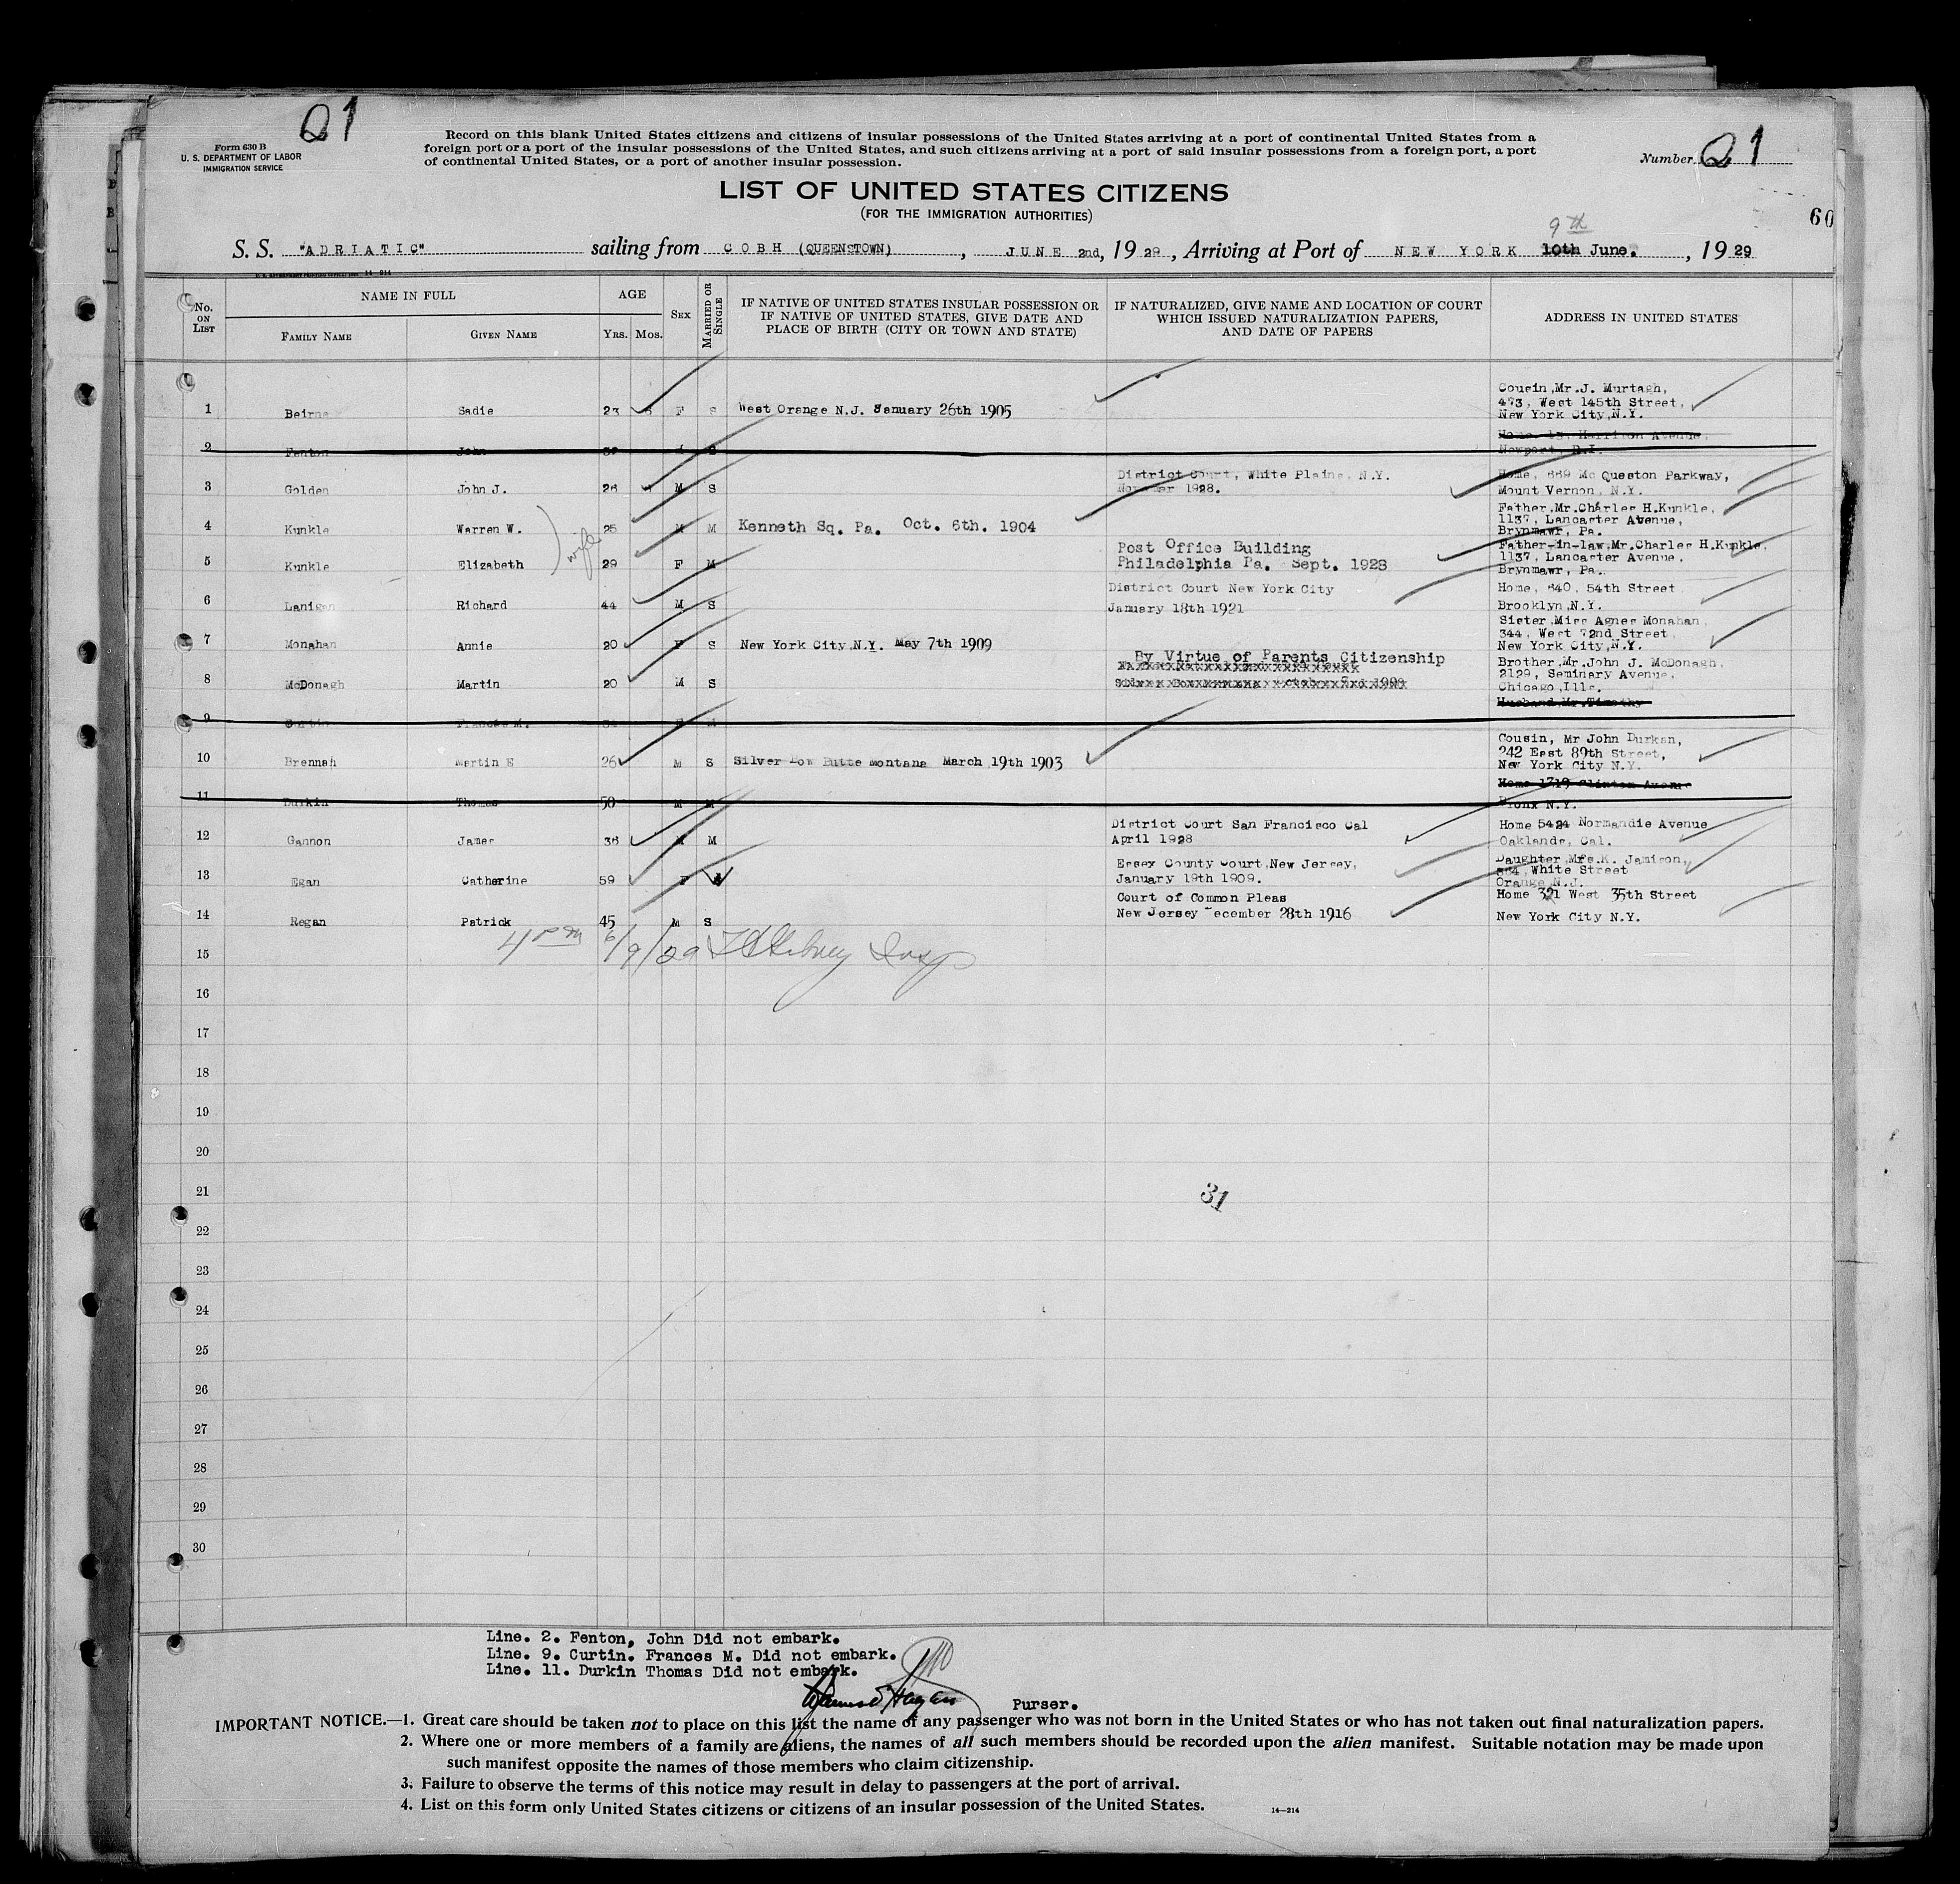 21
Form 630 B
U. S. DEPARTMENT OF LABOR
IMMIGRATION SERVICE
Record on this blank United States citizens and citizens of insular possessions of the United States arriving at a port of continental United States from a
foreign port or a port of the insular possessions of the United States, and such citizens arriving at a port of said insular possessions from a foreign port, a port
of continental United States, or a port of another insular possession.
Number 21
LIST OF UNITED STATES CITIZENS
(FOR THE IMMIGRATION AUTHORITIES)
60
9th
S. S. "ADRIATIC" sailing from COBH (QUEENSTOWN), JUNE 2nd, 1929, Arriving at Port of NEW YORK 10th June., 1929
No. ON LIST
NAME IN FULL
FAMILY NAME
GIVEN NAME
AGE
Yrs. Mos.
SEX
MARRIED OR SINGLE
IF NATIVE OF UNITED STATES INSULAR POSSESSION OR
IF NATIVE OF UNITED STATES, GIVE DATE AND
PLACE OF BIRTH (CITY OR TOWN AND STATE)
IF NATURALIZED, GIVE NAME AND LOCATION OF COURT
WHICH ISSUED NATURALIZATION PAPERS,
AND DATE OF PAPERS
ADDRESS IN UNITED STATES
1 Beirne Sadie 23 F S West Orange N.J. January 26th 1905
Cousin,Mr.J. Murtagh,
473, West 145th Street,
New York City,N.Y.
2 Fenton John
Harrison Avenue
Newport, R.I.
3 Golden John J. 26 M S
District Court, White Plains, N.Y.
November 1928.
Home, 669 Mc Queston Parkway,
Mount Vernon, N.Y.
4 Kunkle Warren W. 25 M M Kenneth Sq. Pa. Oct. 6th. 1904
Father,Mr.Charles H.Kunkle,
1137, Lancaster Avenue,
Brynmawr, Pa.
wife
5 Kunkle Elizabeth 29 F M
Post Office Building
Philadelphia Pa. Sept. 1928
Father-in-law,Mr.Charles H.Kunkle,
1137, Lancaster Avenue,
Brynmawr, Pa.
6 Lanigan Richard 44 M S
District Court New York City
January 18th 1921
Home, 640, 54th Street
Brooklyn,N.Y.
7 Monahan Annie 20 F S New York City,N.Y. May 7th 1909
Sister,Miss Agnes Monahan,
344, West 72nd Street,
New York City,N.Y.
8 McDonagh Martin 20 M S
By Virtue of Parents Citizenship
Brother,Mr.John J. McDonagh,
2129, Seminary Avenue,
Chicago,Ills.
9 Curtin Frances M.
Husband,Mr.Timothy
10 Brennan Martin E 26 M S Silver Bow Butte Montana March 19th 1903
Cousin, Mr John Durkan,
242 East 89th Street,
New York City N.Y.
11 Durkin Thomas 50 M M
Home 1719 Clinton Avenue
Bronx N.Y.
12 Gannon James 36 M M
District Court San Francisco Cal
April 1928
Home 5424 Normandie Avenue
Oaklands, Cal.
13 Egan Catherine 59 F
Essex County Court,New Jersey,
January 19th 1909.
Daughter,Mrs.K. Jamison,
White Street
Orange N.J.
14 Regan Patrick 45 M S
Court of Common Pleas
New Jersey December 28th 1916
Home 321 West 35th Street
New York City N.Y.
4 PM 6/9/29 Insp
15
16
17
18
19
20
21
31
22
23
24
25
26
27
28
29
30
Line. 2. Fenton, John Did not embark.
Line. 9. Curtin. Frances M. Did not embark.
Line. 11. Durkin Thomas Did not embark.
Purser.
IMPORTANT NOTICE.—1. Great care should be taken not to place on this list the name of any passenger who was not born in the United States or who has not taken out final naturalization papers.
2. Where one or more members of a family are aliens, the names of all such members should be recorded upon the alien manifest. Suitable notation may be made upon
such manifest opposite the names of those members who claim citizenship.
3. Failure to observe the terms of this notice may result in delay to passengers at the port of arrival.
4. List on this form only United States citizens or citizens of an insular possession of the United States.
14—214